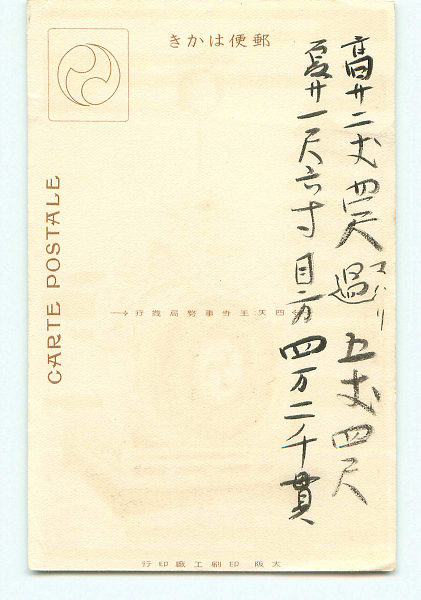 郵便はかき
高サ二丈四尺 廻マハリ 五丈四尺
厚サ一尺六寸 目方 四万二千貫
四天王寺事務局發行
CARTE POSTALE
大阪 印刷工 印行